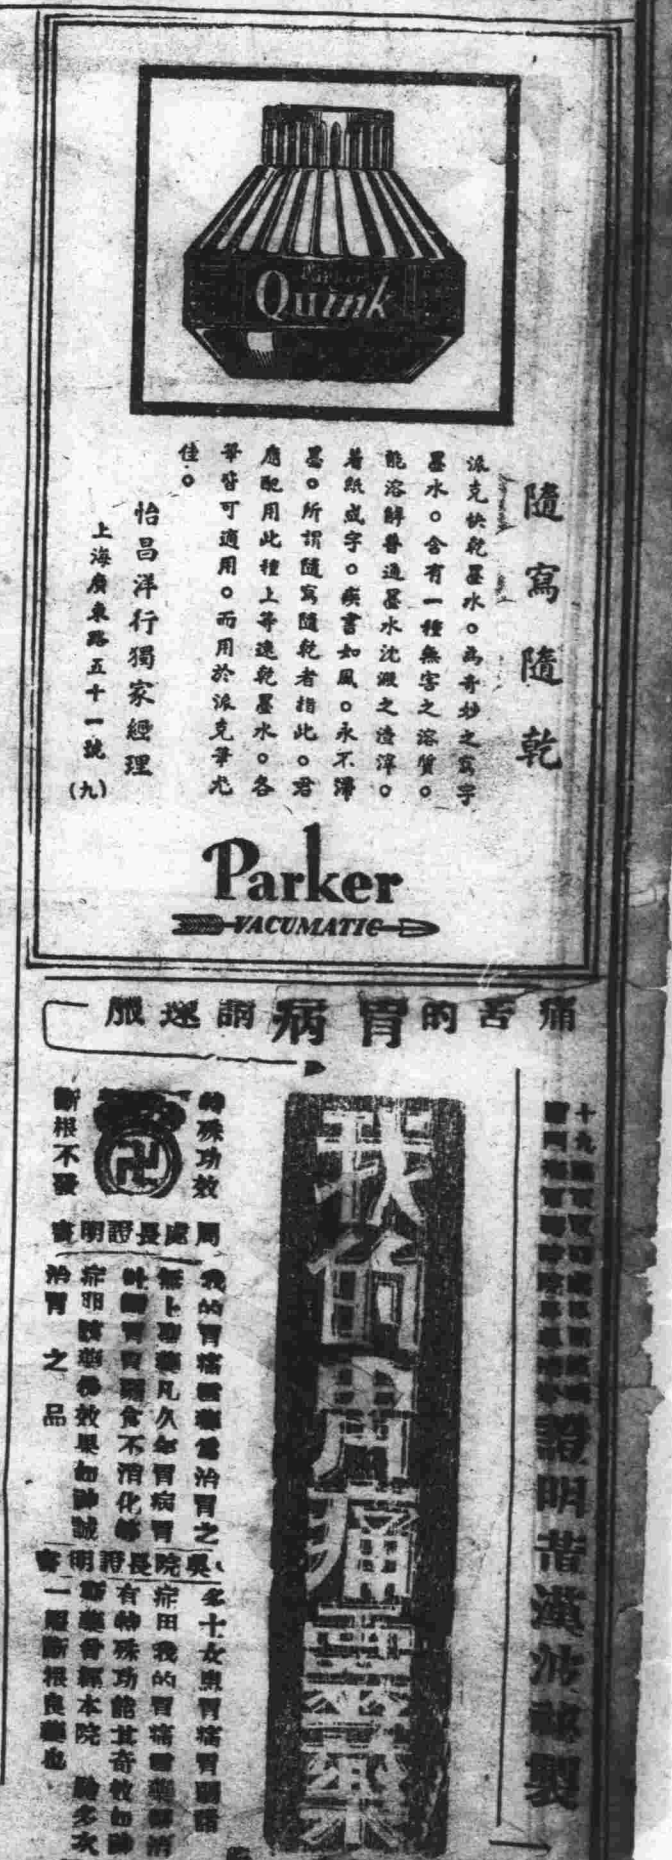 Parker
Quink
隨寫隨乾
派克快乾墨水。為奇妙之寫字
墨水。含有一種無害之溶質。
能溶解普通墨水沈澱之渣滓。
着紙成字。疾書如風。永不滯
墨。所謂隨寫隨乾者指此。君
應配用此種上等速乾墨水。各
筆皆可適用。而用於派克筆尤
佳。
怡昌洋行獨家經理
上海廣東路五十一號
(九)
Parker
VACUMATIC
痛苦的胃病請速服
證明昔漢波秘製
我的胃痛靈藥
特殊功效
卍
斷根不發
周處長證明書
我的胃痛靈藥為治胃之
無上聖藥凡久年胃病胃
食不消化等
症即該藥發效果如神誠
治胃之品
吳院長證明書
多士女患胃痛胃潰瘍
症用我的胃痛靈藥
有特殊功能其奇效如神
靈藥曾經本院 驗多次
一服斷根良藥也